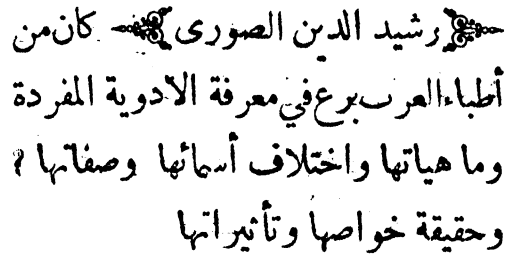 رشيد الدين الصورى كان من
أطباء العرب برع في معرفة الادوية المفردة
وماهياتها واختلاف أسمائها وصفاتها ؟
وحقيقة خواصها وتأثيراتها